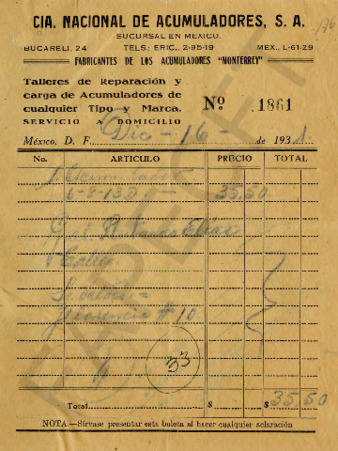 CIA. NACIONAL DE ACUMULADORES, S. A.
SUCURSAL EN MEXICO.
BUCARELI, 24 TELS.: ERIC., 2-95-19 MEX., L-61-29
FABRICANTES DE LOS ACUMULADORES "MONTERREY"
Talleres de Reparación y
carga de Acumuladores de
cualquier Tipo y Marca.
SERVICIO A DOMICILIO
Nº 1861
México, D. F. Dic - 16 - de 193
No. ARTICULO PRECIO TOTAL
1 Acumulador
6-8-13 35.50
Gral. P. Elías
Calles
#10
33
Total $ $35.50
NOTA.—Sírvase presentar esta boleta al hacer cualquier aclaración